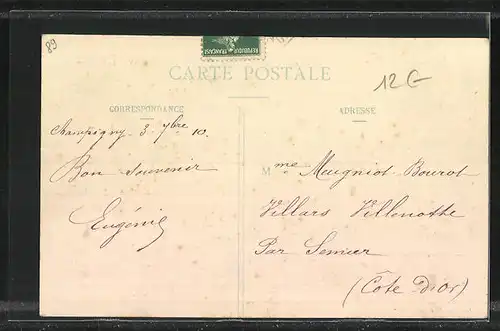 89
REPUBLIQUE FRANÇAISE
CARTE POSTALE
12 €
CORRESPONDANCE
ADRESSE
Champigny 3 7bre 10.
Bon Souvenir
Eugénie
Mme Meugniot-Bourot
Villars Villenotte
Par Semur
(Côte d'Or)